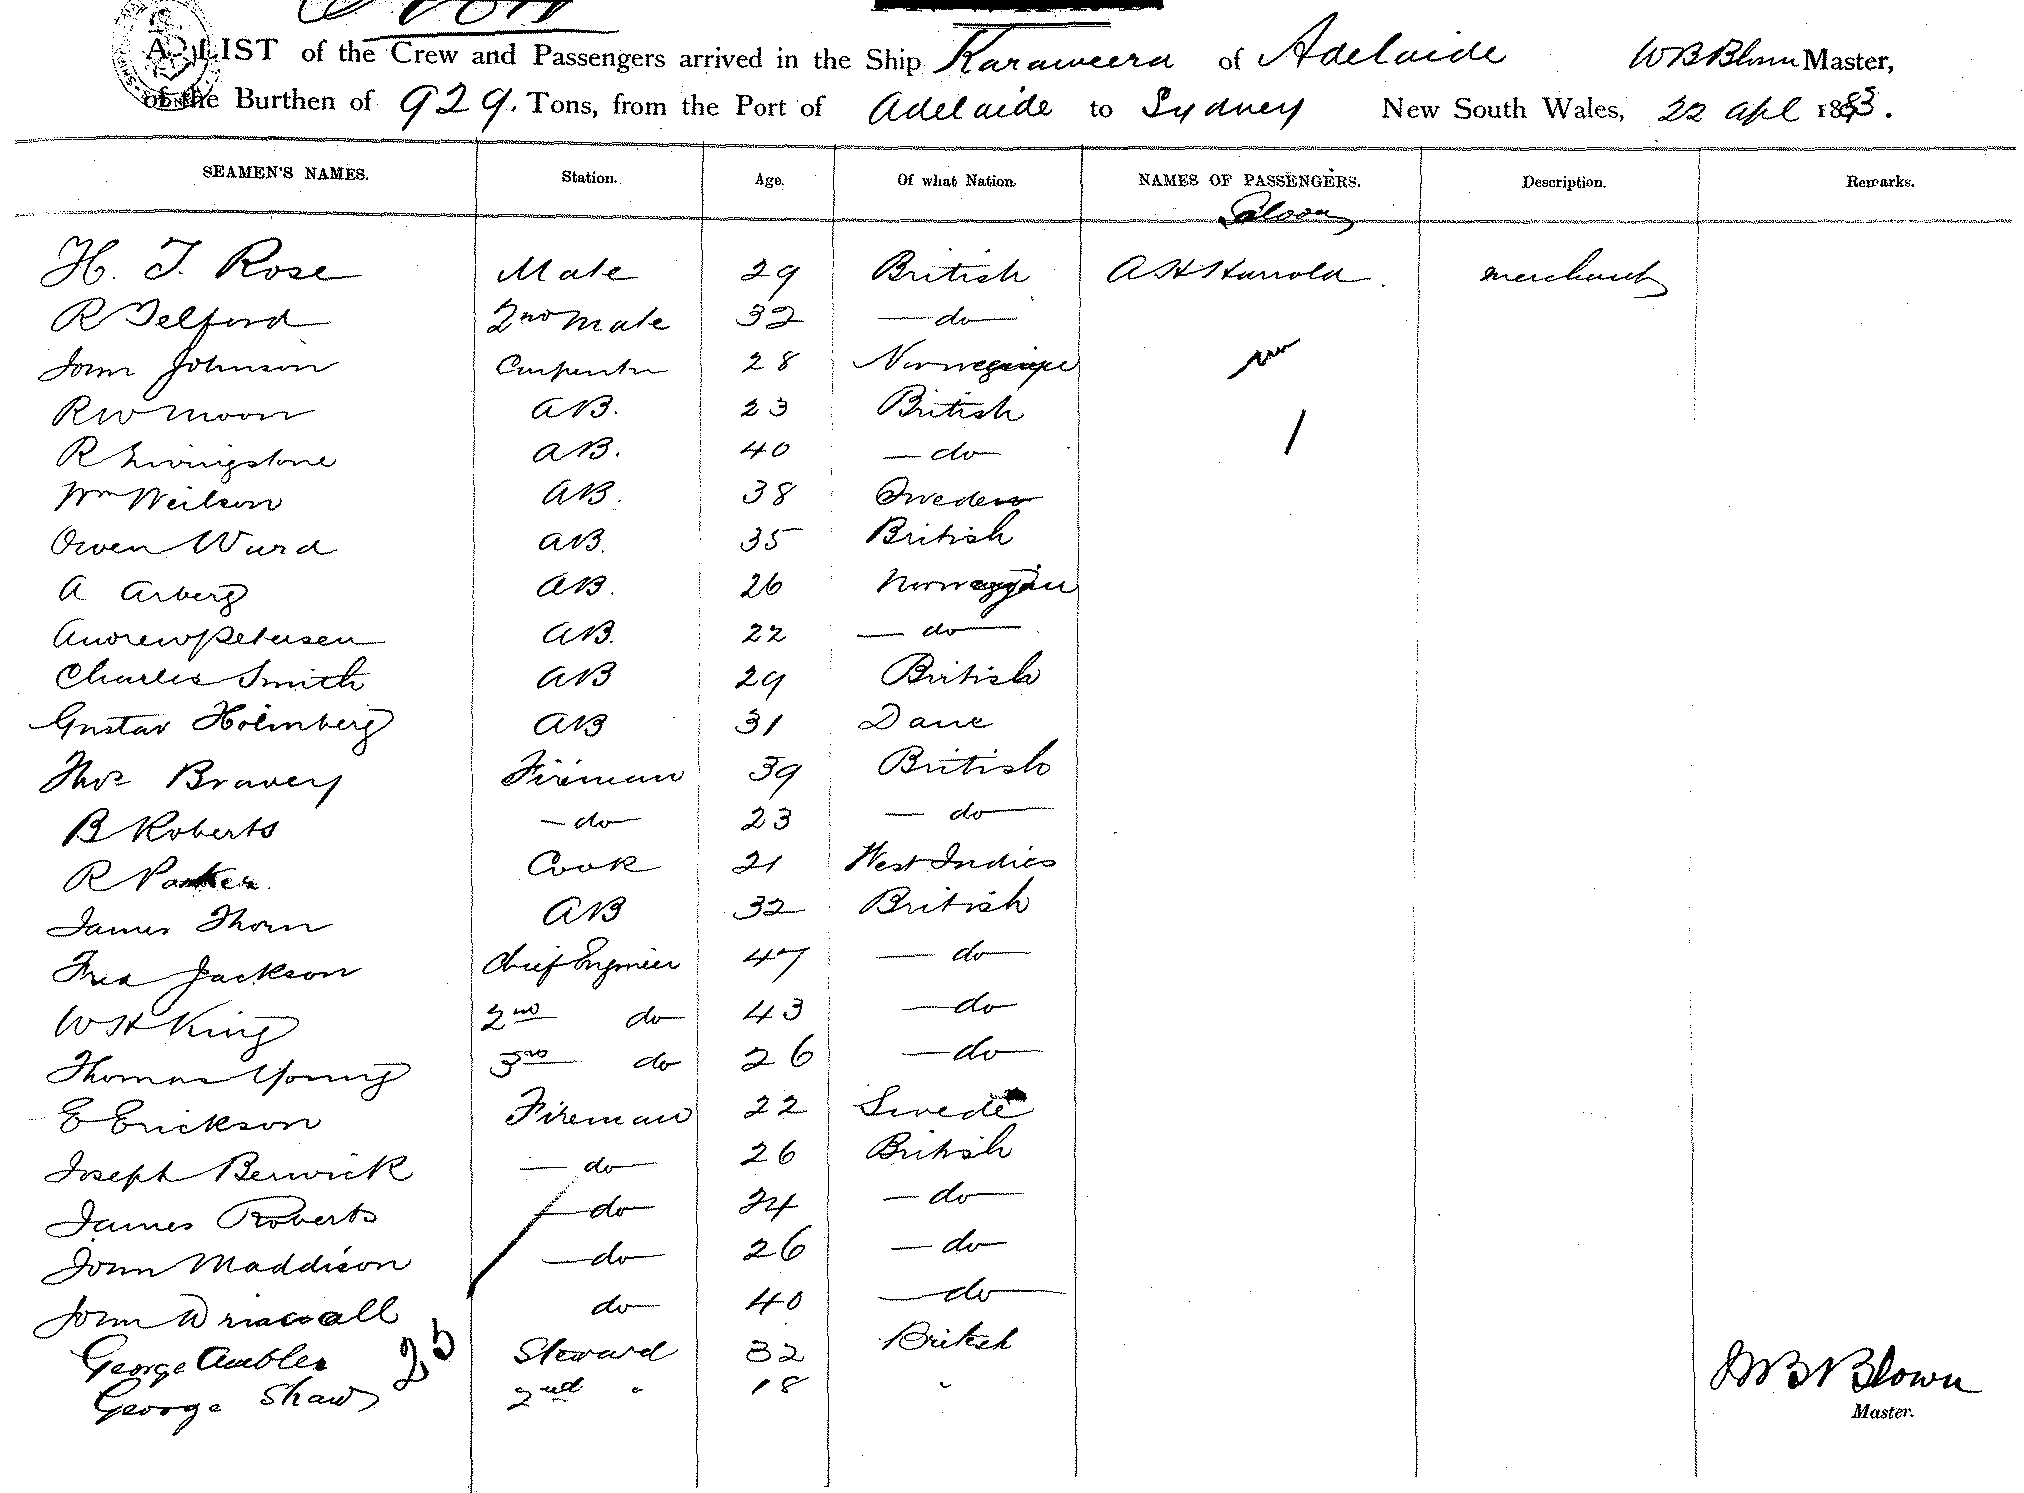 A LIST of the Crew and Passengers arrived in the Ship Karaweera of Adelaide WB Blown Master,
of the Burthen of 929. Tons, from the Port of Adelaide to Sydney New South Wales, 22 apl 1883.
SEAMEN'S NAMES. Station. Age. Of what Nation. NAMES OF PASSENGERS. Description. Remarks.
Saloon
H. T. Rose Mate 29 British A H Harrold. merchant
R Telford 2nd Mate 32 — do —
John Johnson Carpenter 28
R W Moon AB. 23 British
R Livingstone AB. 40 — do — 1
Wm Neilson AB. 38 Swede
Owen Ward AB. 35 British
A Arberg AB. 26 Norwegian
Andrew Petersen AB. 22 — do —
Charles Smith AB 29 British
Gustav Holmberg AB 31 Dane
Thos Bravery Fireman 39 British
B Roberts — do — 23 — do —
R Parker. Cook 21 West Indies
James Thorn AB 32 British
Fred Jackson Chief Engineer 47 — do —
W H King 2nd do 43 — do —
Thomas Young 3rd do 26 — do —
E Erickson Fireman 22 Swede
Joseph Berwick — do — 26 British
James Roberts — do — 24 — do —
John Maddison — do — 26 — do —
John do 40 — do —
George Ambler 25 Steward 32 British
George Shaw 2nd " 18 "
WB Blown
Master.